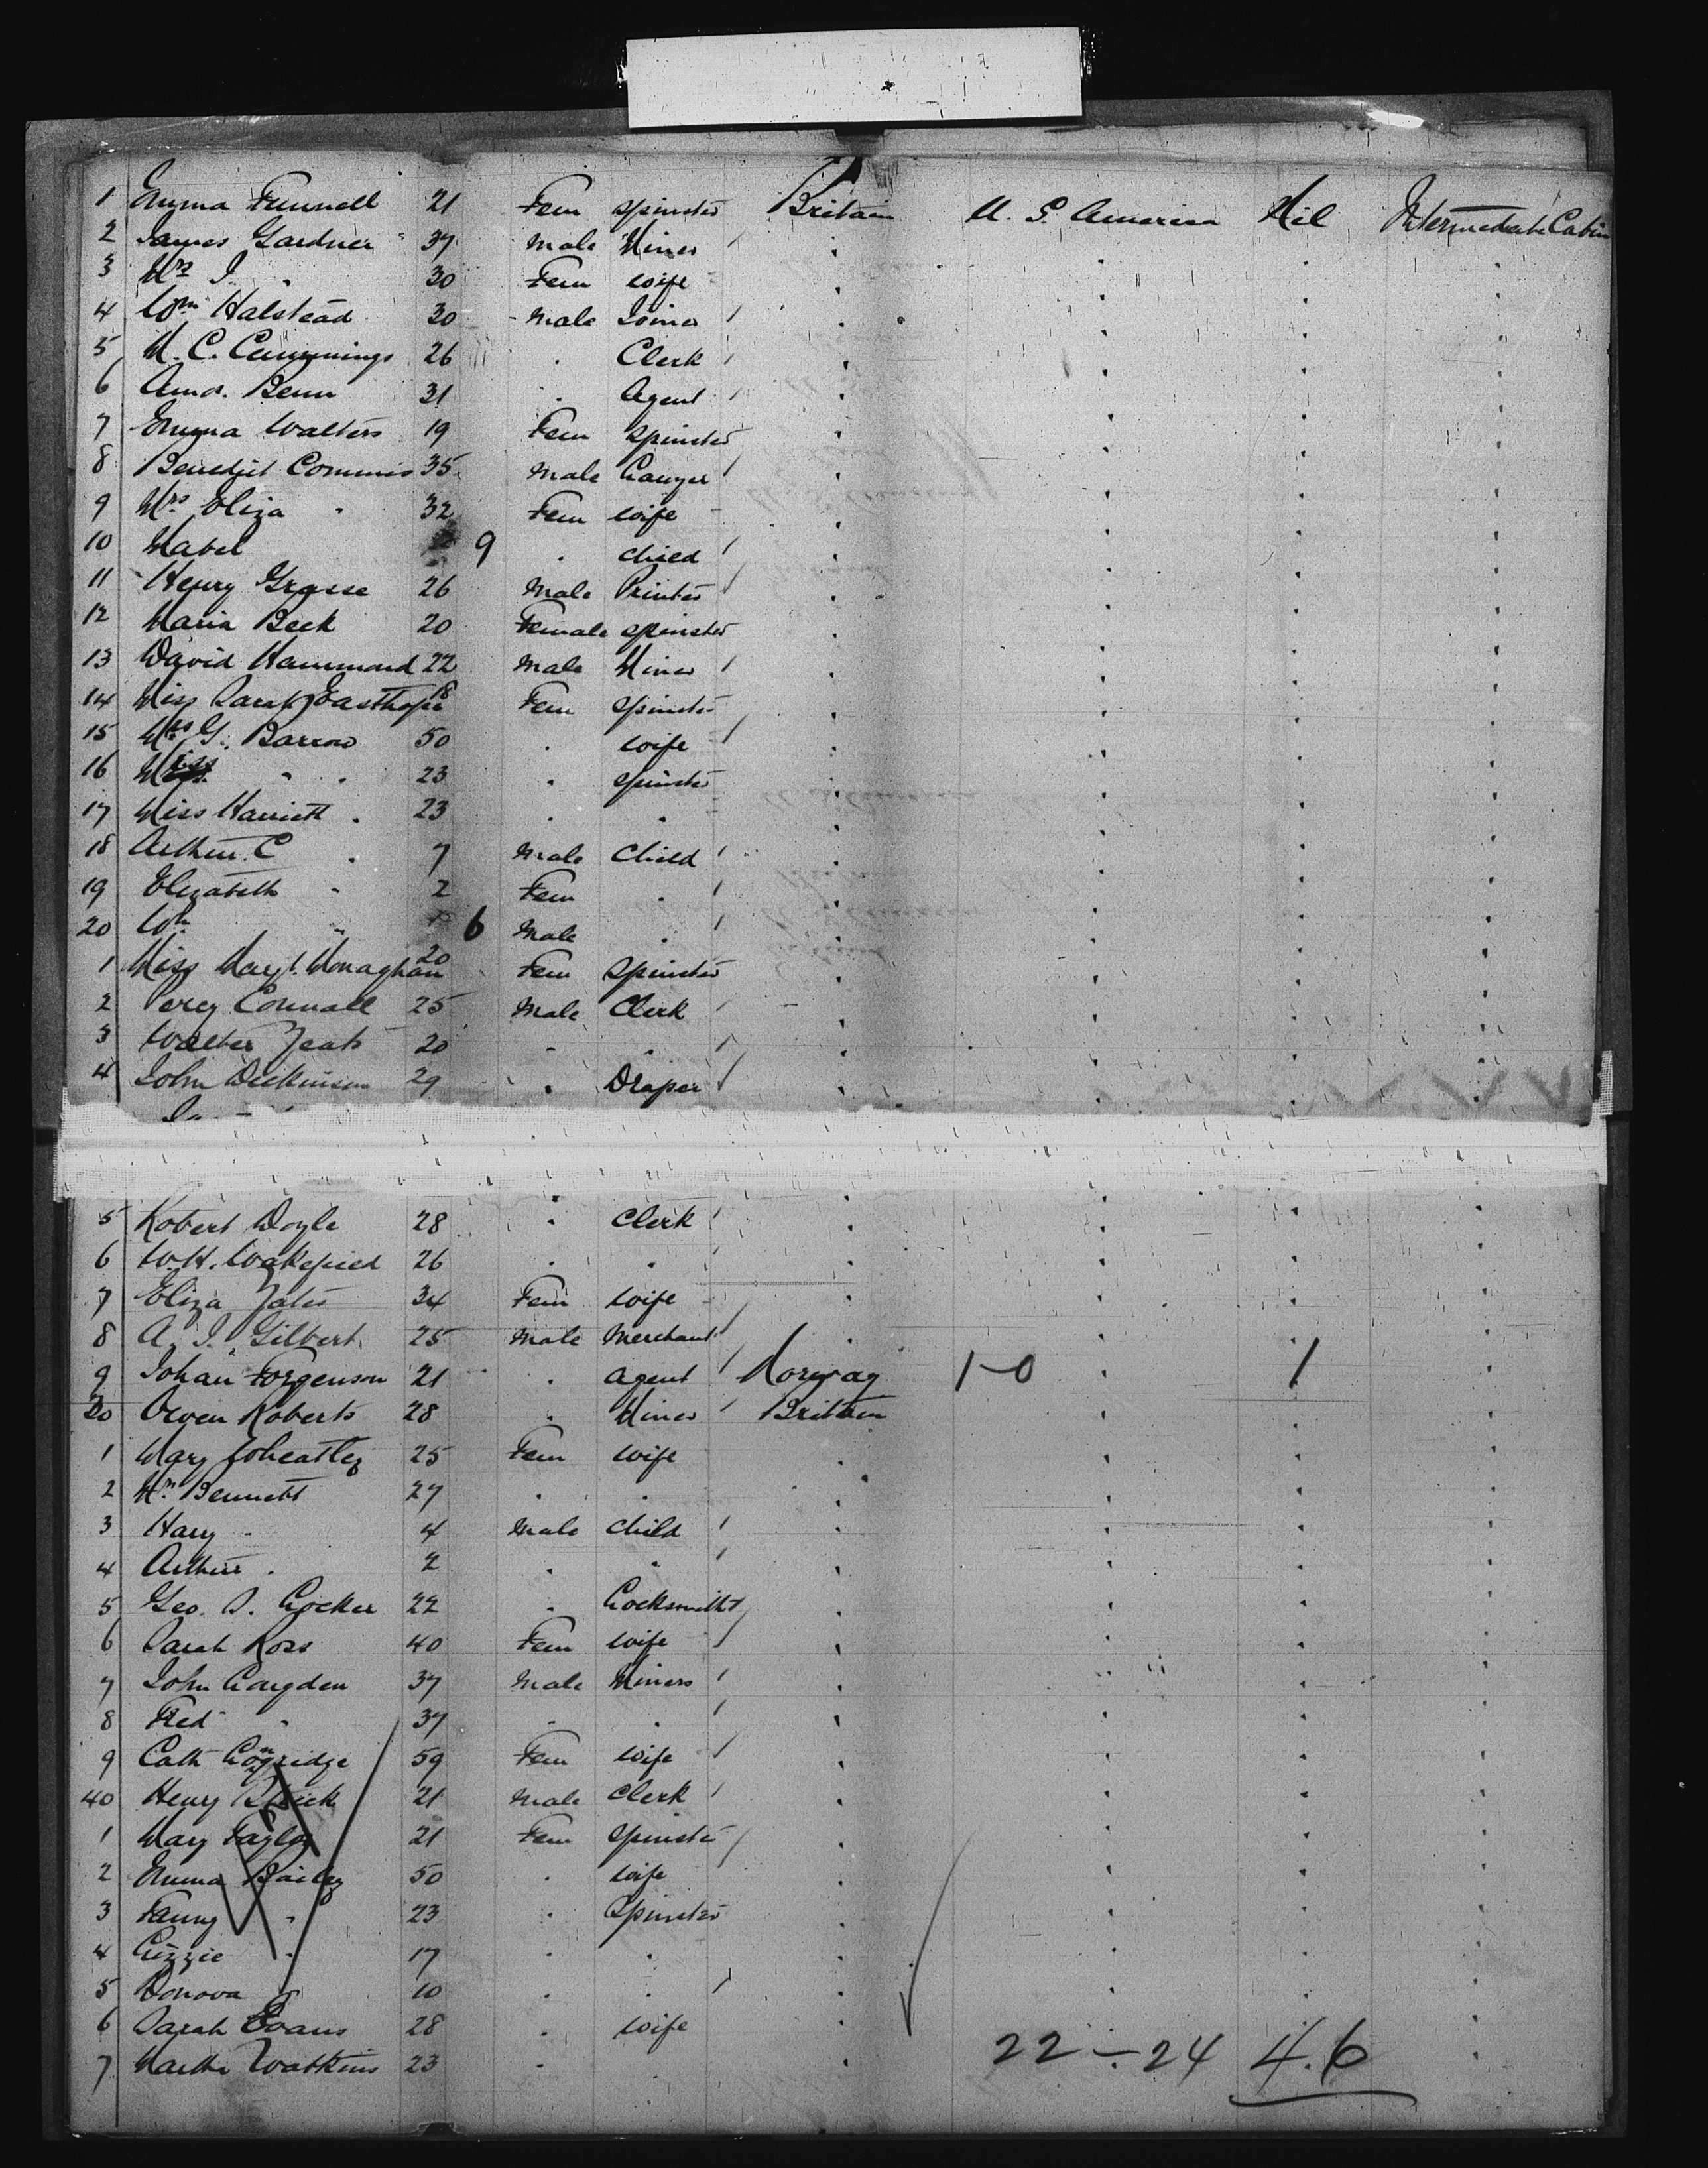 1 Emma Funnell 21 Fem spinster Britain U. S. America Nil Intermediate Cabin
2 James Gardner " 37 Male Miner / "
3 Mrs J. " 30 Fem wife
4 Wm Halstead 30 Male Joiner /
5 M. C. Cummings 26 " Clerk /
6 Benn 31 " Agent /
7 Emma Walters 19 Fem spinster
8 35 Male /
9 Mrs Eliza " 32 Fem wife
10 Mabel 9 " child /
11 Henry 26 Male Printer /
12 Maria Beck 20 Female spinster
13 David Hammond 22 Male Miner /
14 Miss Sarah Easthope 18 Fem spinster
15 Mrs G. Barrow 50 " wife /
16 Miss " " 23 " spinster
17 Miss Harriett " 23 " "
18 Arthur C " 7 Male Child /
19 Elizabeth " 2 Fem " /
20 Wm " 6 Male " /
1 Miss Mary Monaghan 20 Fem spinster
2 Percy 25 Male Clerk /
3 Walter 20 " " /
4 John Dickinson 29 " Draper /
5 Robert Doyle 28 " Clerk /
6 W. H. Wakefield 26 " " /
7 Eliza 34 Fem wife
8 A. J. Gilbert 25 Male Merchant /
9 Johan 21 " agent / Norway 1-0 " 1
30 Owen Roberts 28 " Miner / Britain
1 Mary Wheatley 25 Fem wife
2 Bennett 27 " "
3 Harry " 4 Male child /
4 Arthur " 2 " " /
5 Geo. S. Locker 22 " Locksmith /
6 Sarah Ross 40 Fem wife /
7 John Langden 37 Male Miners /
8 Fred " 37 " " /
9 Cath 59 Fem wife /
40 Henry 21 Male Clerk /
1 Mary Taylor 21 Fem spinster /
2 Emma Bailey 50 " wife
3 Fanny " 23 " Spinster
4 Lizzie " 17 " "
5 Donova " 10 " " /
6 Sarah Evans 28 " wife
7 Martha Watkins 23 " "
22 — 24 46